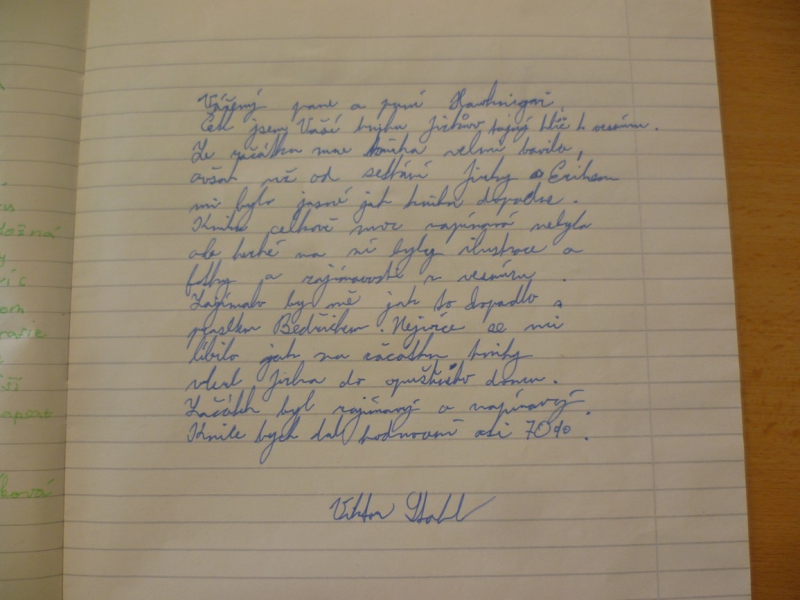 Vážený pane a paní Hawkingovi,
Četl jsem Vaší knihu Jirkův tajný klíč k vesmíru.
Ze začátku mne kniha velmi bavila,
avšak už od setkání Jirky s Erikem
mi bylo jasné jak kniha dopadne.
Kniha celkově moc napínavá nebyla
ale hezké na ní byly ilustrace a
fotky a zajímavosti z vesmíru.
Zajímalo by mě jak to dopadlo s
prasátkem Bedřichem. Nejvíce se mi
líbilo jak na začátku knihy
vlezl Jirka do opuštěného domu.
Začátek byl zajímavý a napínavý.
Knize bych dal hodnocení asi 70%.
Viktor Stahl
ložná
ková